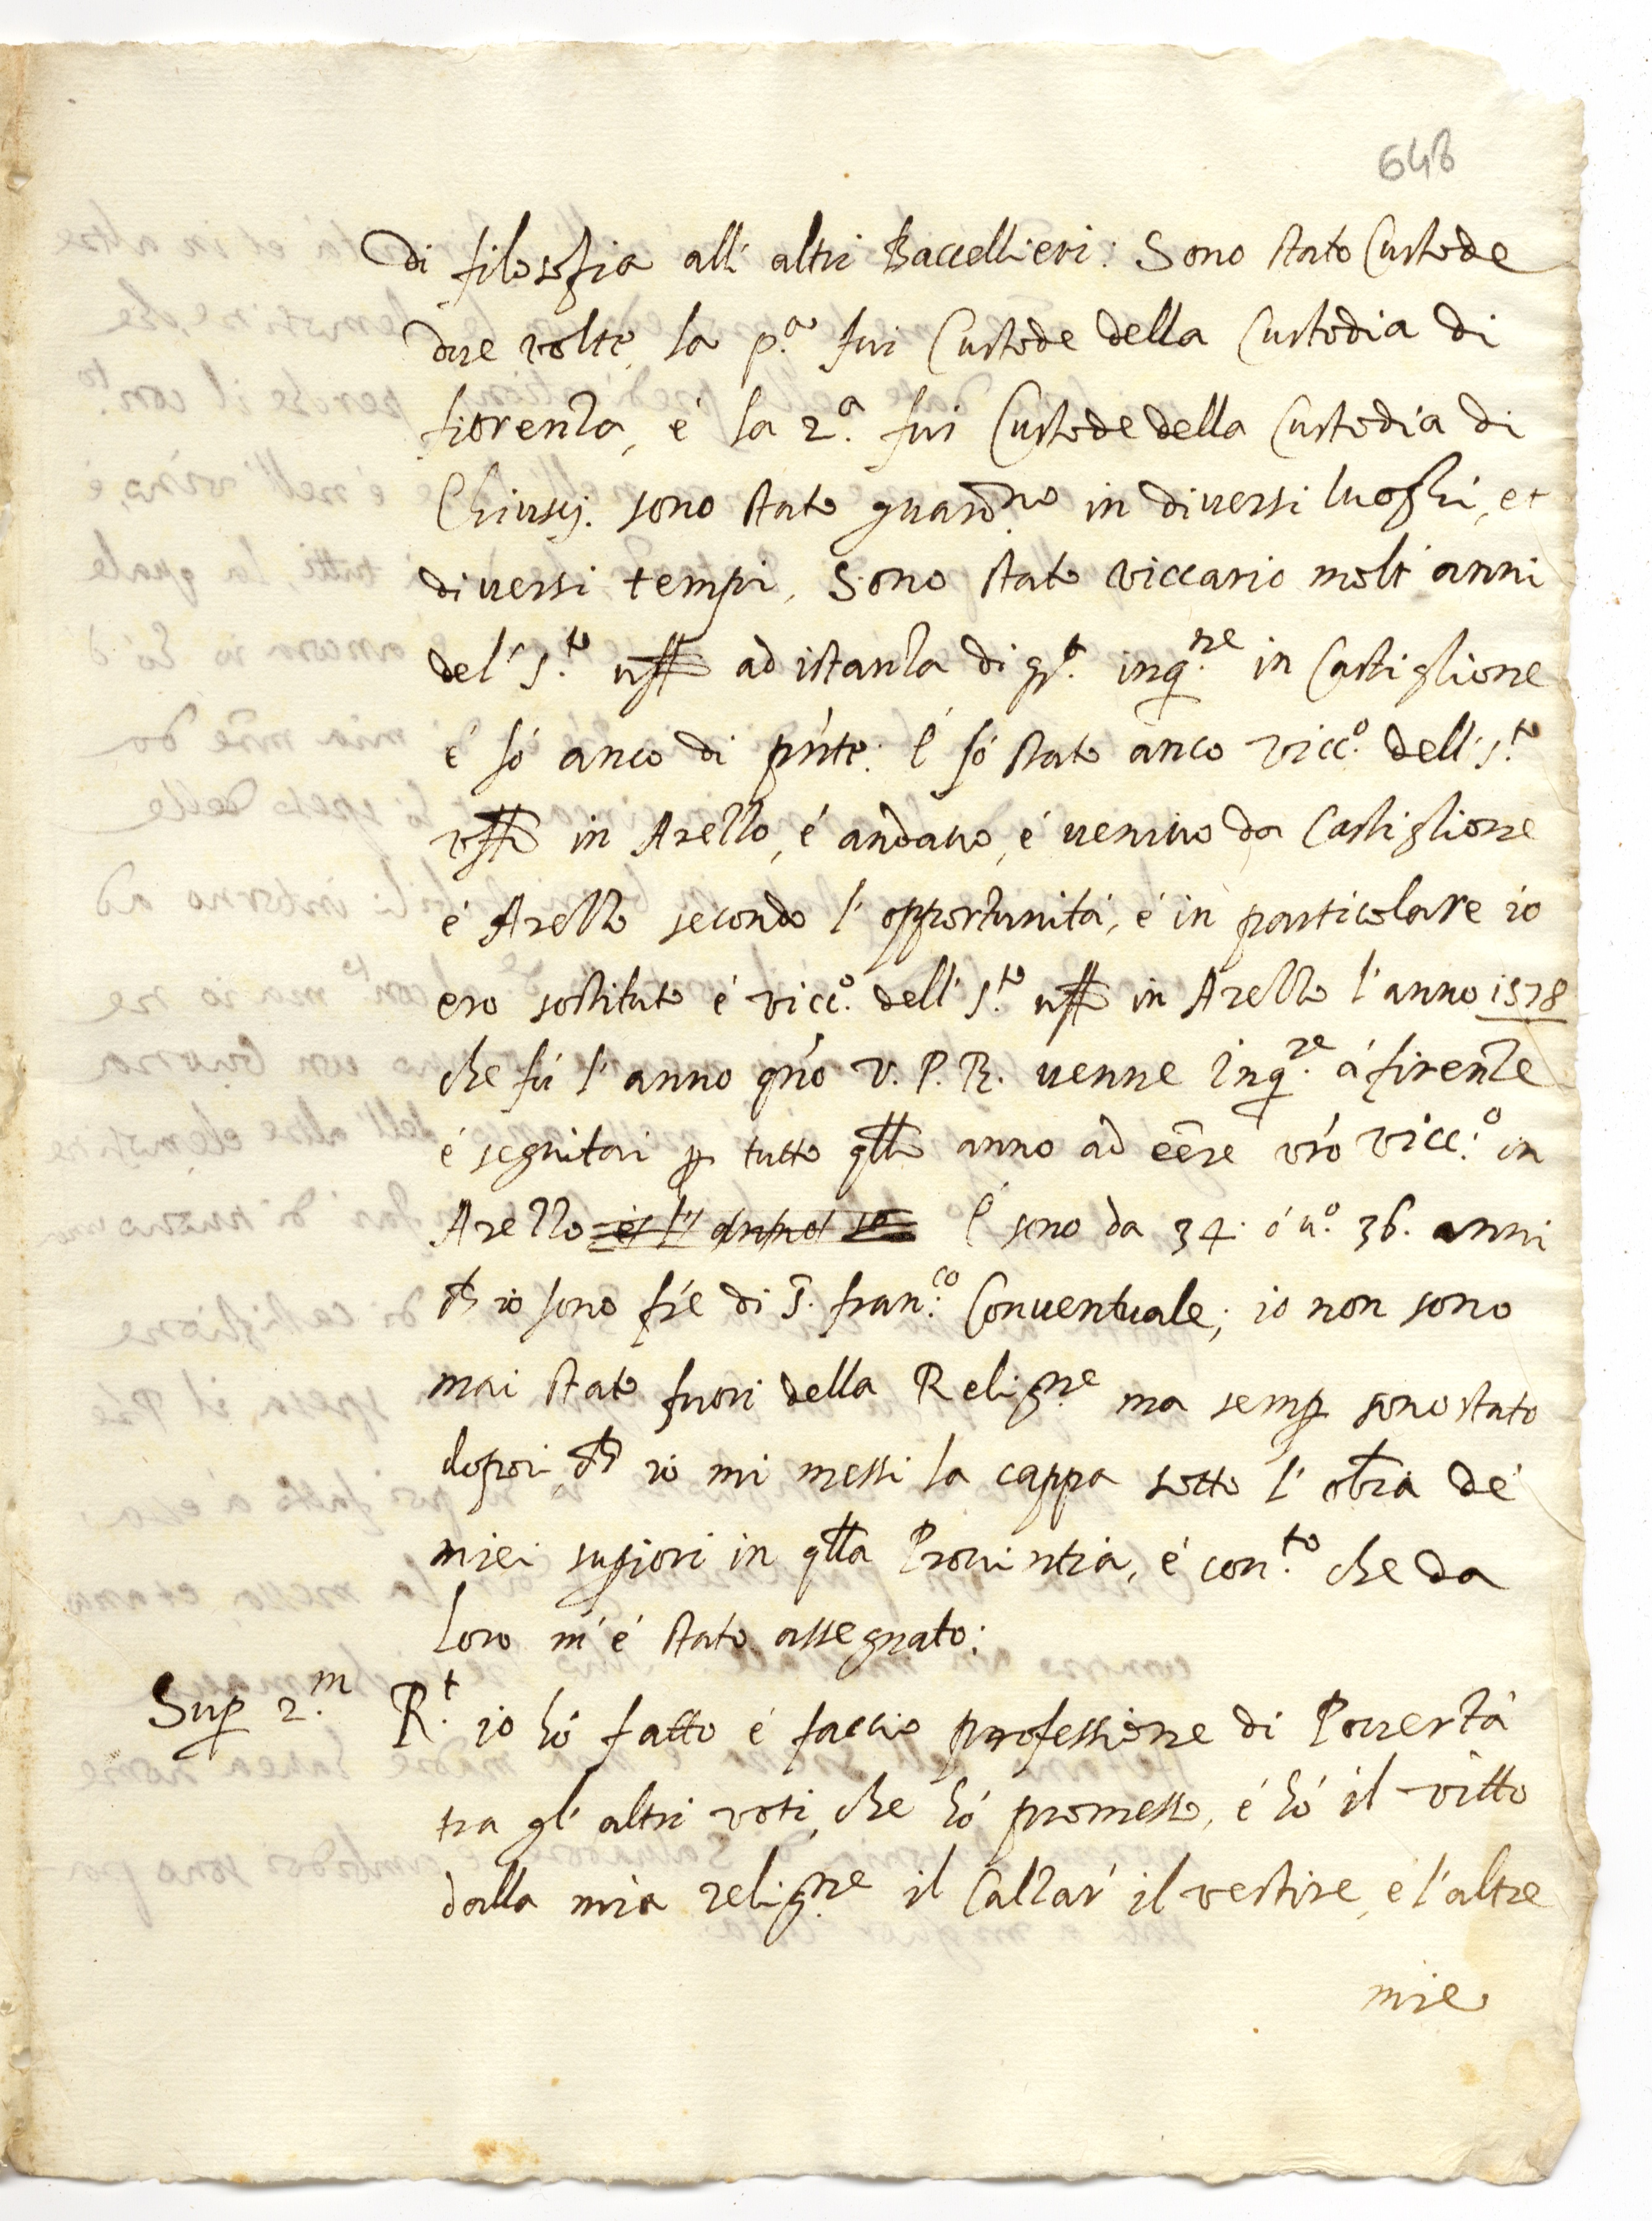 648
di filosofia alli altri Baccellieri: Sono stato Custode
due volte, la p.a fui Custode della Custodia di
fiorenza, é la 2.a fui Custode della Custodia di
Chiusij. sono stato guard.no in diuersi luoghi, et
diuersi tempi, Sono stato viccario molt' anni
del' S.to uffo ad istanza di q.to inq.re in Castiglione
é só anco di pn̄te. É só stato anco vicc.o dell' S.to
uffo in Arezzo, é andauo, é ueniuo da Castiglione
é Arezzo secondo l' opportunitá, é in particolare io
ero sostituto é vicc.o dell' S.to uffo in Arezzo l' anno 1578
che fú l' anno qn̄o V. P. R. uenne Inq.re á firenze
é seguitai p tutto qllo anno ad eēre vrō vicc.o in
Arezzo é l' anno io É sono da 34. ó u.o 36. anni
ch io sono fr̄e di S. fran.co Conuentuale; io non sono
mai stato fuori della Relig.ne ma semp sono stato
dopoi ch io mi messi la cappa sotto l' obr̄a de'
miei supiori in qlla Prouintia, é con.to che da
loro m' é stato assegnato:
Sup 2.m R.t io hó fatto é faccio professione di Pouertá
tra gl' altri voti, che hó promesso, é hó il vitto
dalla mia relig.ne il Calzar' il vestire, é l' altre
mie